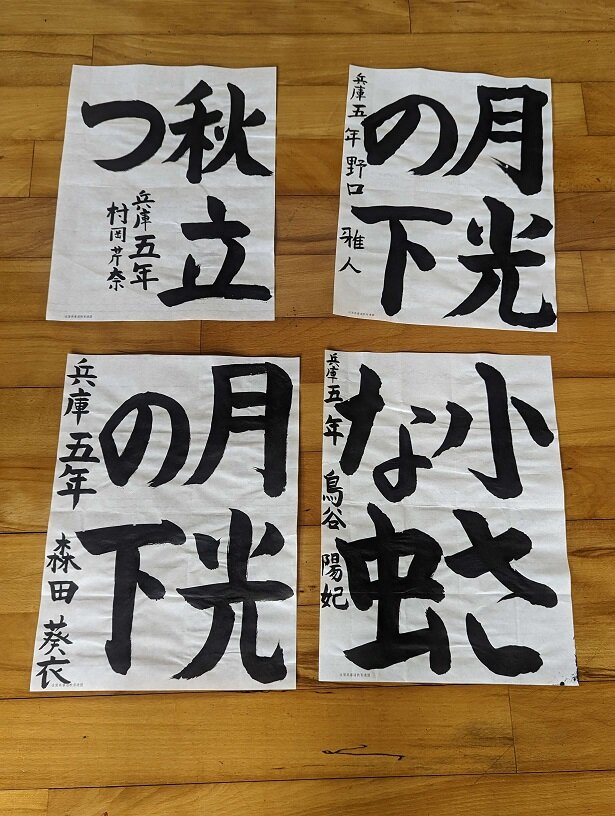 秋立
つ
兵庫五年
村岡芹奈
月光
の下
兵庫五年 野口 雅人
月光
の下
兵庫五年 森田 葵衣
小さ
な虫
兵庫五年 鳥谷 陽妃